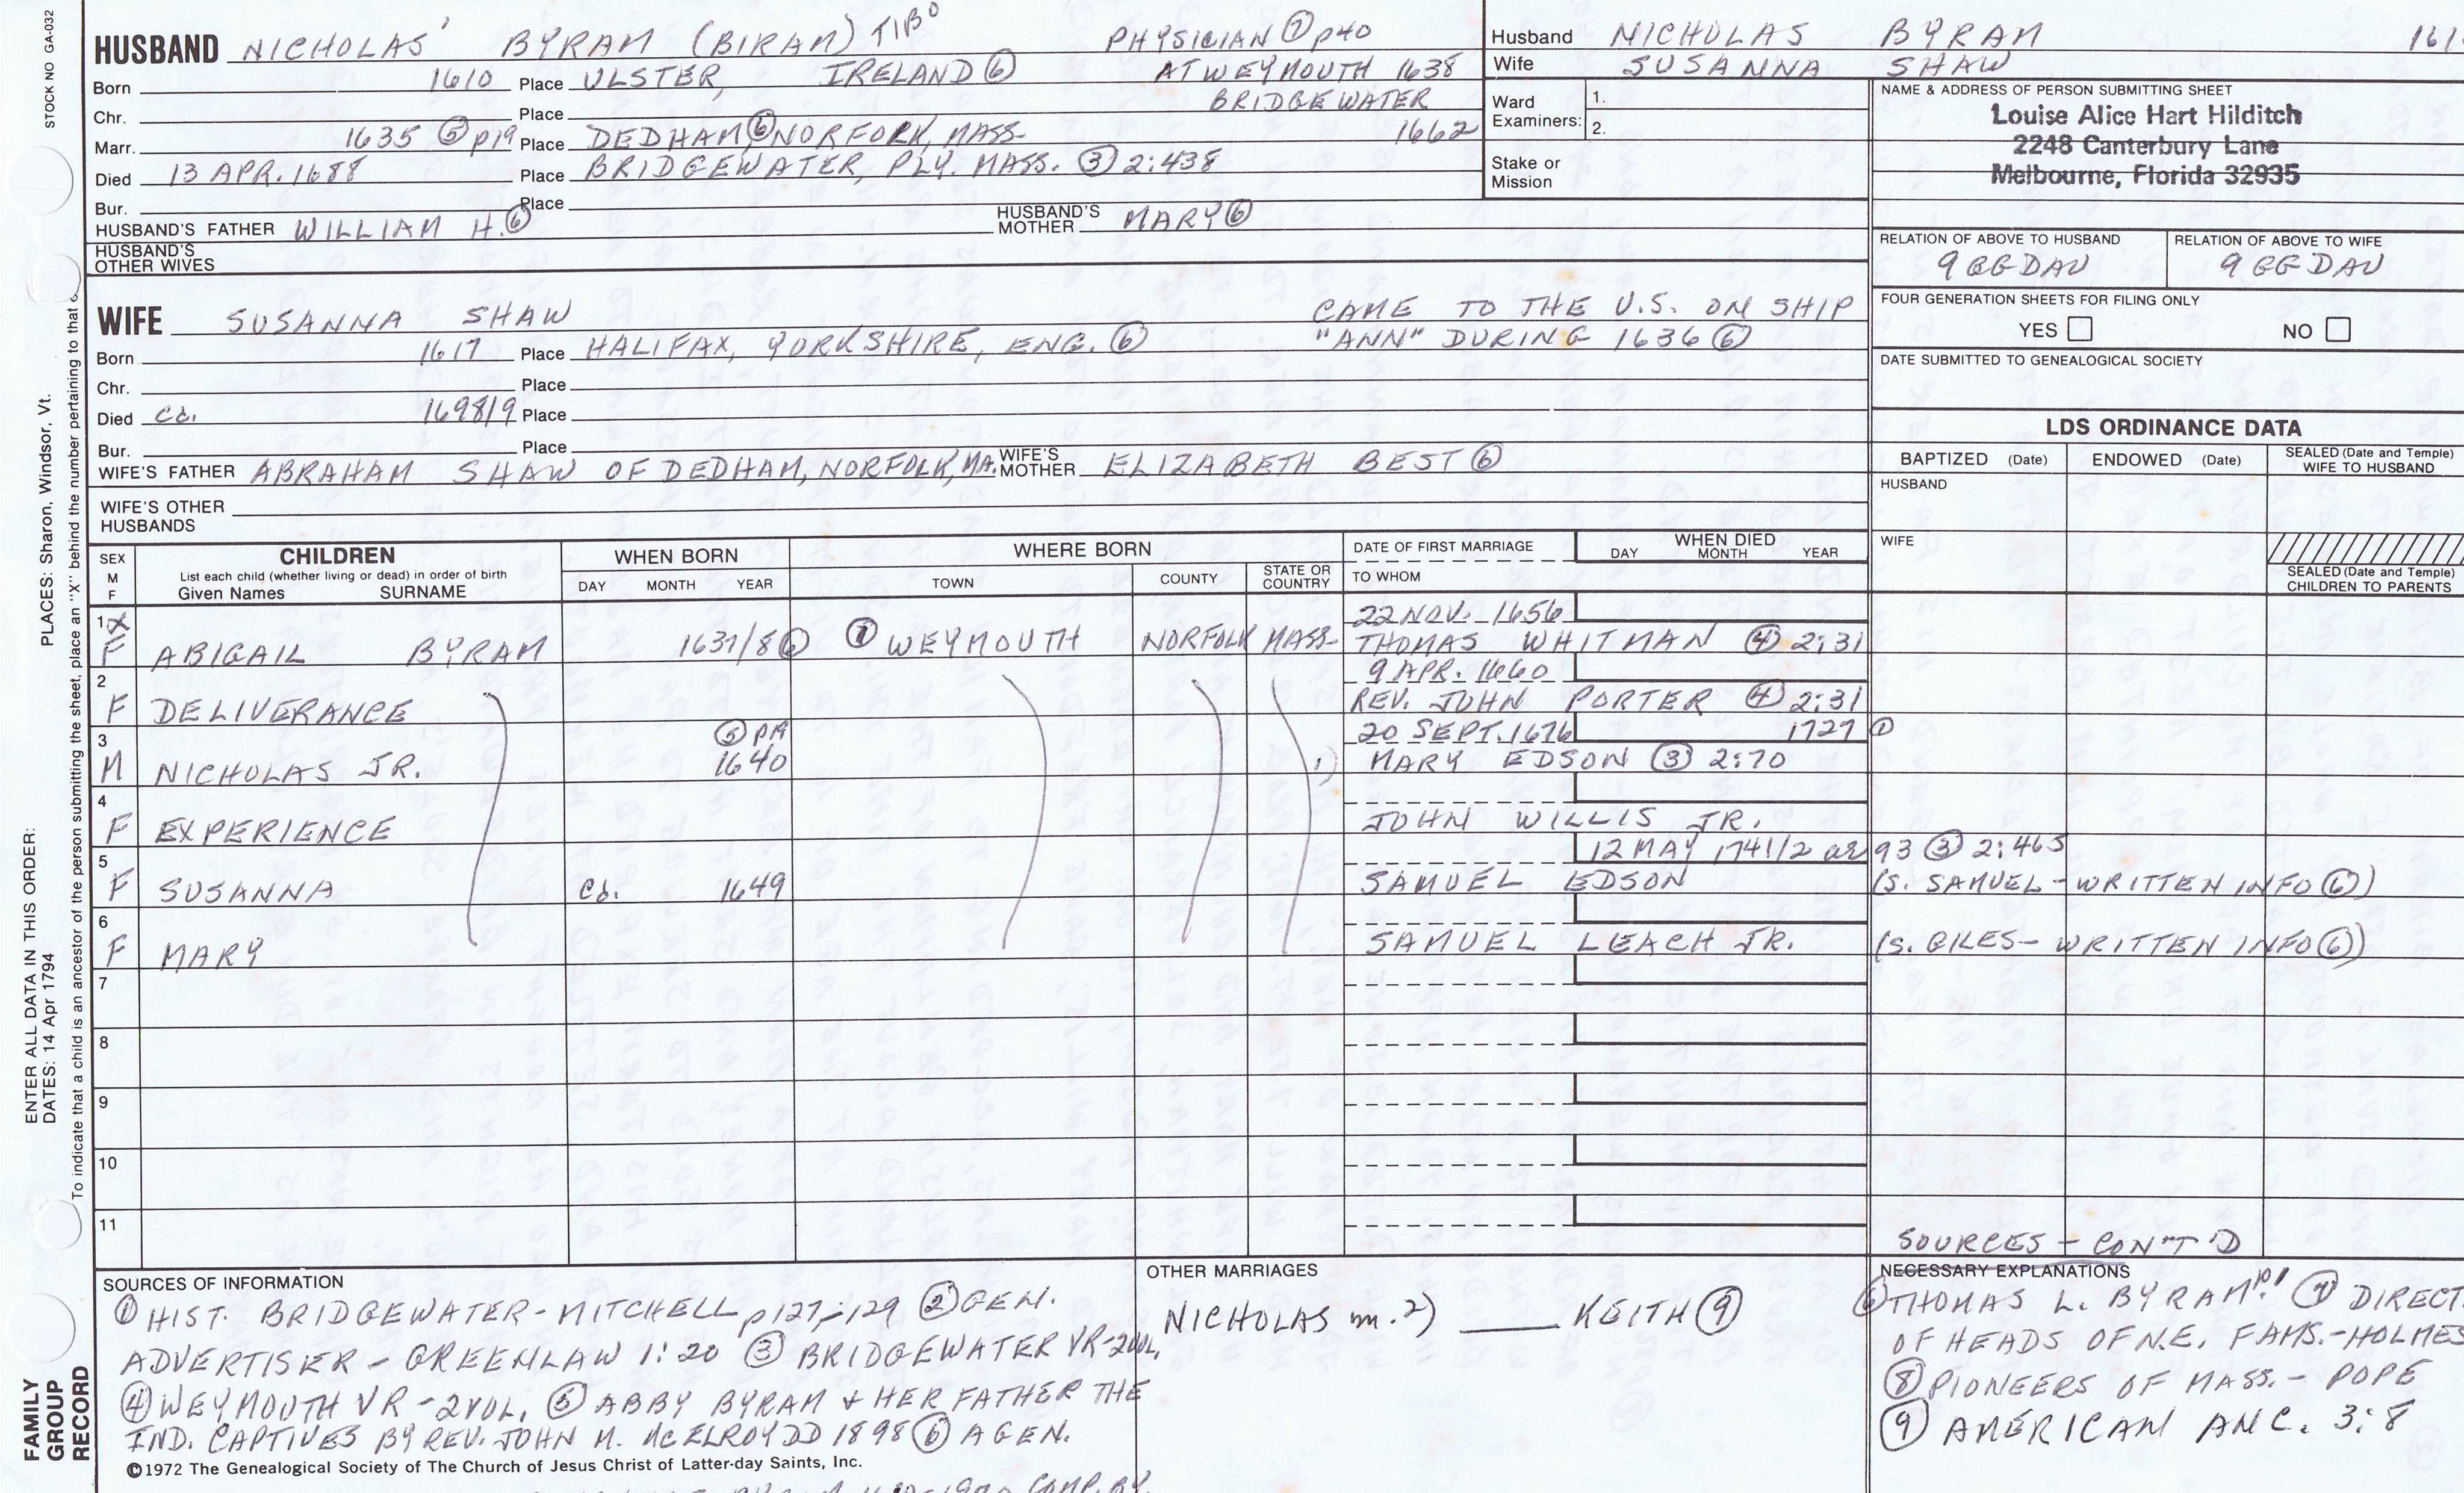 STOCK NO GA-032
PLACES: Sharon, Windsor, Vt.
ENTER ALL DATA IN THIS ORDER:
DATES: 14 Apr 1794
To indicate that a child is an ancestor of the person submitting the sheet, place an "X" behind the number pertaining to that
FAMILY GROUP RECORD
HUSBAND NICHOLAS' BYRAM (BIRAM) PHYSICIAN ⑦ p40
Born 1610 Place ULSTER, IRELAND ⑥ AT WEYMOUTH 1638
Chr. Place BRIDGEWATER 1662
Marr. 1635 ⑤ p19 Place DEDHAM ⑥, NORFOLK, MASS.
Died 13 APR. 1688 Place BRIDGEWATER, PLY. MASS. ③ 2:438
Bur. Place
HUSBAND'S FATHER WILLIAM H. ⑥ HUSBAND'S MOTHER MARY ⑥
HUSBAND'S OTHER WIVES
Husband NICHOLAS BYRAM 161
Wife SUSANNA SHAW
Ward Examiners: 1.
2.
Stake or Mission
NAME & ADDRESS OF PERSON SUBMITTING SHEET
Louise Alice Hart Hilditch
2248 Canterbury Lane
Melbourne, Florida 32935
RELATION OF ABOVE TO HUSBAND RELATION OF ABOVE TO WIFE
9 GG DAU 9 GG DAU
FOUR GENERATION SHEETS FOR FILING ONLY
YES NO
DATE SUBMITTED TO GENEALOGICAL SOCIETY
WIFE SUSANNA SHAW CAME TO THE U.S. ON SHIP
Born 1617 Place HALIFAX, YORKSHIRE, ENG. ⑥ "ANN" DURING 1636 ⑥
Chr. Place
Died Cd. 1698/9 Place
Bur. Place
WIFE'S FATHER ABRAHAM SHAW OF DEDHAM, NORFOLK, MA. WIFE'S MOTHER ELIZABETH BEST ⑥
WIFE'S OTHER HUSBANDS
LDS ORDINANCE DATA
BAPTIZED (Date) ENDOWED (Date) SEALED (Date and Temple) WIFE TO HUSBAND
HUSBAND
WIFE
SEALED (Date and Temple) CHILDREN TO PARENTS
SEX M F CHILDREN WHEN BORN WHERE BORN DATE OF FIRST MARRIAGE WHEN DIED
List each child (whether living or dead) in order of birth
Given Names SURNAME DAY MONTH YEAR TOWN COUNTY STATE OR COUNTRY TO WHOM DAY MONTH YEAR
1 X 22 NOV. 1656
F ABIGAIL BYRAM 1637/8 ⑥ ① WEYMOUTH NORFOLK MASS. THOMAS WHITMAN ④ 2:31
2 9 APR. 1660
F DELIVERANCE REV. JOHN PORTER ④ 2:31
3 ⑤ p19 20 SEPT. 1676 1727 ①
M NICHOLAS JR. 1640 MARY EDSON ③ 2:70
4
F EXPERIENCE JOHN WILLIS JR.
5 12 MAY 1741/2 ae 93 ③ 2:465
F SUSANNA Cd. 1649 SAMUEL EDSON (S. SAMUEL - WRITTEN INFO ⑥)
6
F MARY SAMUEL LEACH JR. (S. GILES - WRITTEN INFO ⑥)
7
8
9
10
11
SOURCES - CON'T'D
SOURCES OF INFORMATION
① HIST. BRIDGEWATER - MITCHELL p127-129 ② GEN.
ADVERTISER - GREENLAW 1:20 ③ BRIDGEWATER VR-2VOL.
④ WEYMOUTH VR - 2VOL. ⑤ ABBY BYRAM & HER FATHER THE
IND. CAPTIVES BY REV. JOHN M. McELROY DD 1898 ⑥ A GEN.
©1972 The Genealogical Society of The Church of Jesus Christ of Latter-day Saints, Inc.
COMP. BY
OTHER MARRIAGES
NICHOLAS m. 2) ____ KEITH ⑨
NECESSARY EXPLANATIONS
⑥ THOMAS L. BYRAM p1 ⑦ DIRECT.
OF HEADS OF N.E. FAMS. - HOLMES
⑧ PIONEERS OF MASS. - POPE
⑨ AMERICAN ANC. 3:8